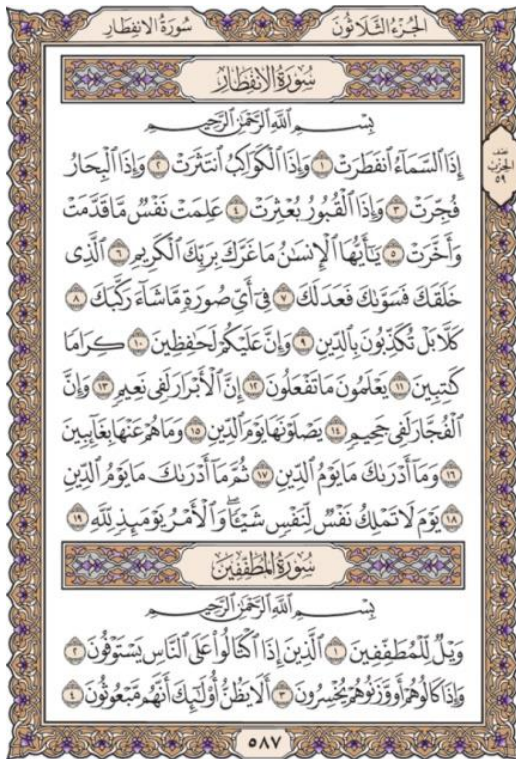 الجُزْءُ الثَّلَاثُونَ
سُورَةُ الانفِطَارِ
سُورَةُ الانفِطَارِ
بِسْمِ ٱللَّهِ ٱلرَّحْمَٰنِ ٱلرَّحِيمِ
إِذَا ٱلسَّمَآءُ ٱنفَطَرَتْ ١ وَإِذَا ٱلْكَوَاكِبُ ٱنتَثَرَتْ ٢ وَإِذَا ٱلْبِحَارُ
نصف
الحزب
٥٩
فُجِّرَتْ ٣ وَإِذَا ٱلْقُبُورُ بُعْثِرَتْ ٤ عَلِمَتْ نَفْسٌ مَّا قَدَّمَتْ
وَأَخَّرَتْ ٥ يَٰٓأَيُّهَا ٱلْإِنسَٰنُ مَا غَرَّكَ بِرَبِّكَ ٱلْكَرِيمِ ٦ ٱلَّذِى
خَلَقَكَ فَسَوَّىٰكَ فَعَدَلَكَ ٧ فِىٓ أَىِّ صُورَةٍ مَّا شَآءَ رَكَّبَكَ ٨
كَلَّا بَلْ تُكَذِّبُونَ بِٱلدِّينِ ٩ وَإِنَّ عَلَيْكُمْ لَحَٰفِظِينَ ١٠ كِرَامًا
كَٰتِبِينَ ١١ يَعْلَمُونَ مَا تَفْعَلُونَ ١٢ إِنَّ ٱلْأَبْرَارَ لَفِى نَعِيمٍ ١٣ وَإِنَّ
ٱلْفُجَّارَ لَفِى جَحِيمٍ ١٤ يَصْلَوْنَهَا يَوْمَ ٱلدِّينِ ١٥ وَمَا هُمْ عَنْهَا بِغَآئِبِينَ
١٦ وَمَآ أَدْرَىٰكَ مَا يَوْمُ ٱلدِّينِ ١٧ ثُمَّ مَآ أَدْرَىٰكَ مَا يَوْمُ ٱلدِّينِ
١٨ يَوْمَ لَا تَمْلِكُ نَفْسٌ لِّنَفْسٍ شَيْـًٔا ۖ وَٱلْأَمْرُ يَوْمَئِذٍ لِّلَّهِ ١٩
سُورَةُ المُطَفِّفِينَ
بِسْمِ ٱللَّهِ ٱلرَّحْمَٰنِ ٱلرَّحِيمِ
وَيْلٌ لِّلْمُطَفِّفِينَ ١ ٱلَّذِينَ إِذَا ٱكْتَالُوا۟ عَلَى ٱلنَّاسِ يَسْتَوْفُونَ ٢
وَإِذَا كَالُوهُمْ أَو وَّزَنُوهُمْ يُخْسِرُونَ ٣ أَلَا يَظُنُّ أُو۟لَٰٓئِكَ أَنَّهُم مَّبْعُوثُونَ ٤
٥٨٧